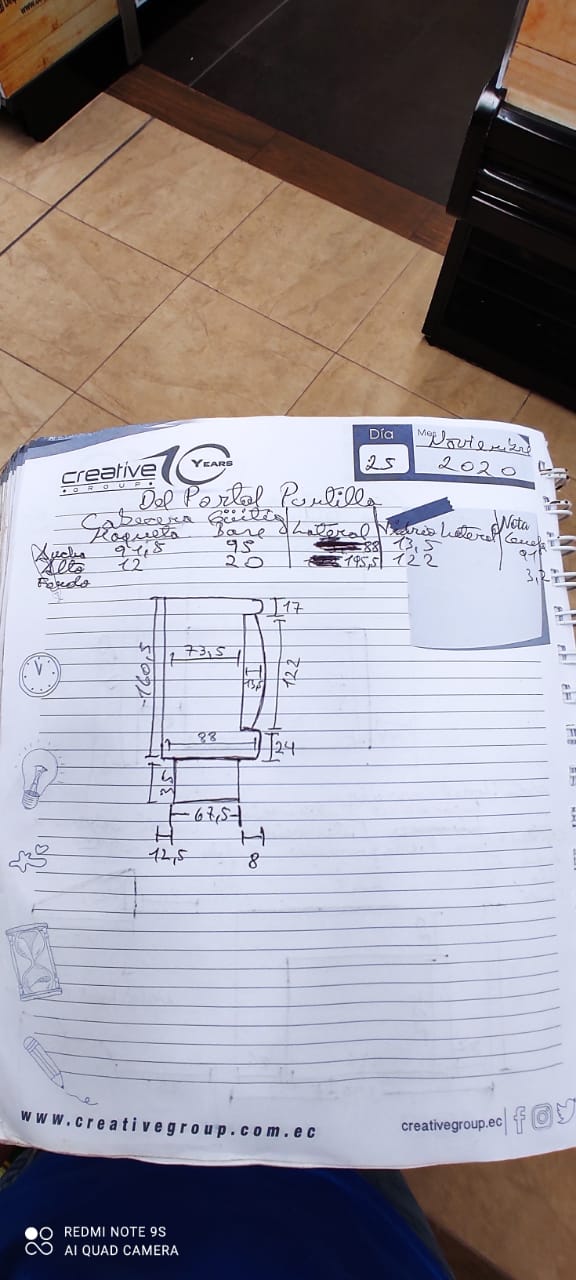 creative 10 YEARS
GROUP
Día
Mes
Noviembre
25
2020
Del Portal Portilla
Cabecera Güitig
Maqueta Base Lateral Vidrio Lateral Nota
Ancho 91,5 95 88 13,5
Alto 12 20 195,5 122
Fondo
17
160,5
73,5
13,5
122
88
24
35
67,5
12,5
8
www.creativegroup.com.ec
creativegroup.ec
REDMI NOTE 9S
AI QUAD CAMERA